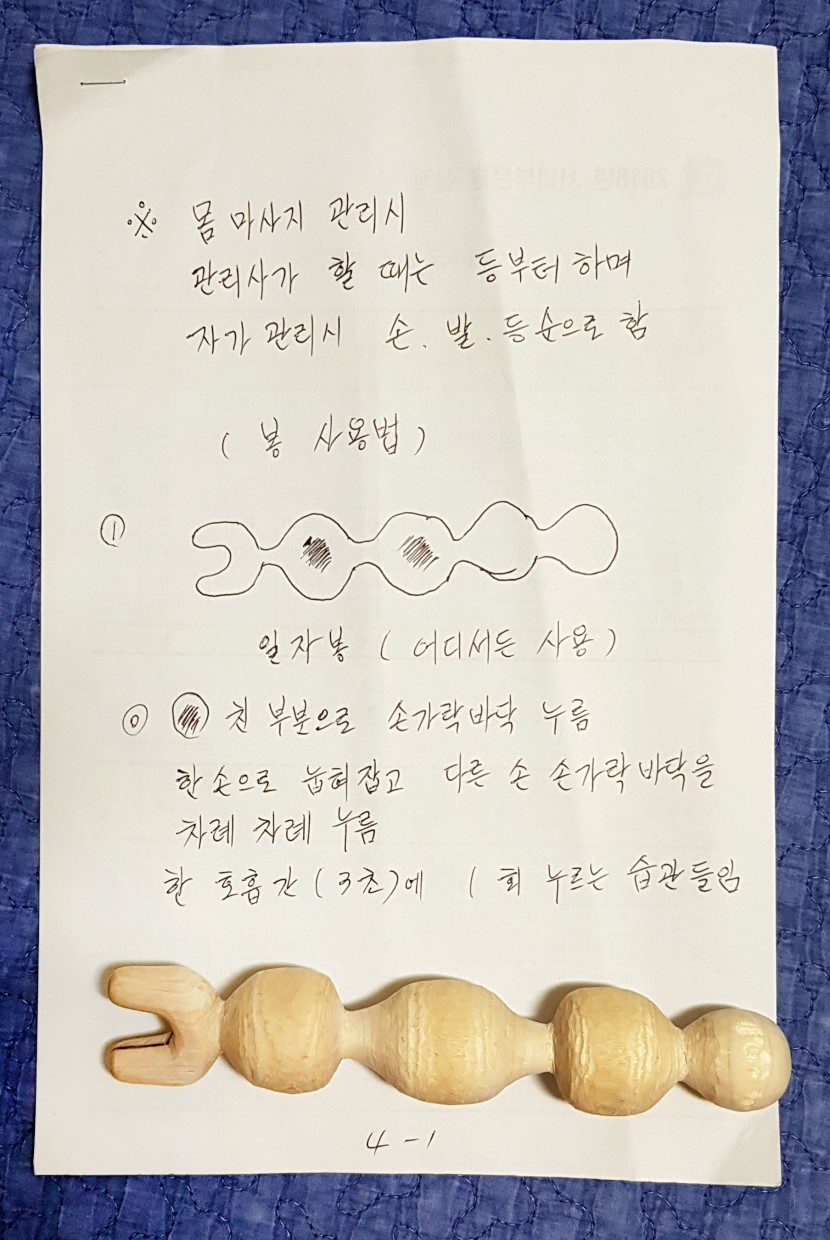 ※ 몸 마사지 관리시
관리사가 할 때는 등부터 하며
자가 관리시 손. 발. 등 순으로 함
( 봉 사용법 )
①
일자봉 ( 어디서든 사용 )
◎ 친 부분으로 손가락 바닥 누름
한 손으로 눕혀잡고 다른 손 손가락 바닥을
차례 차례 누름
한 호흡간 (3초)에 1회 누르는 습관 들임
4-1